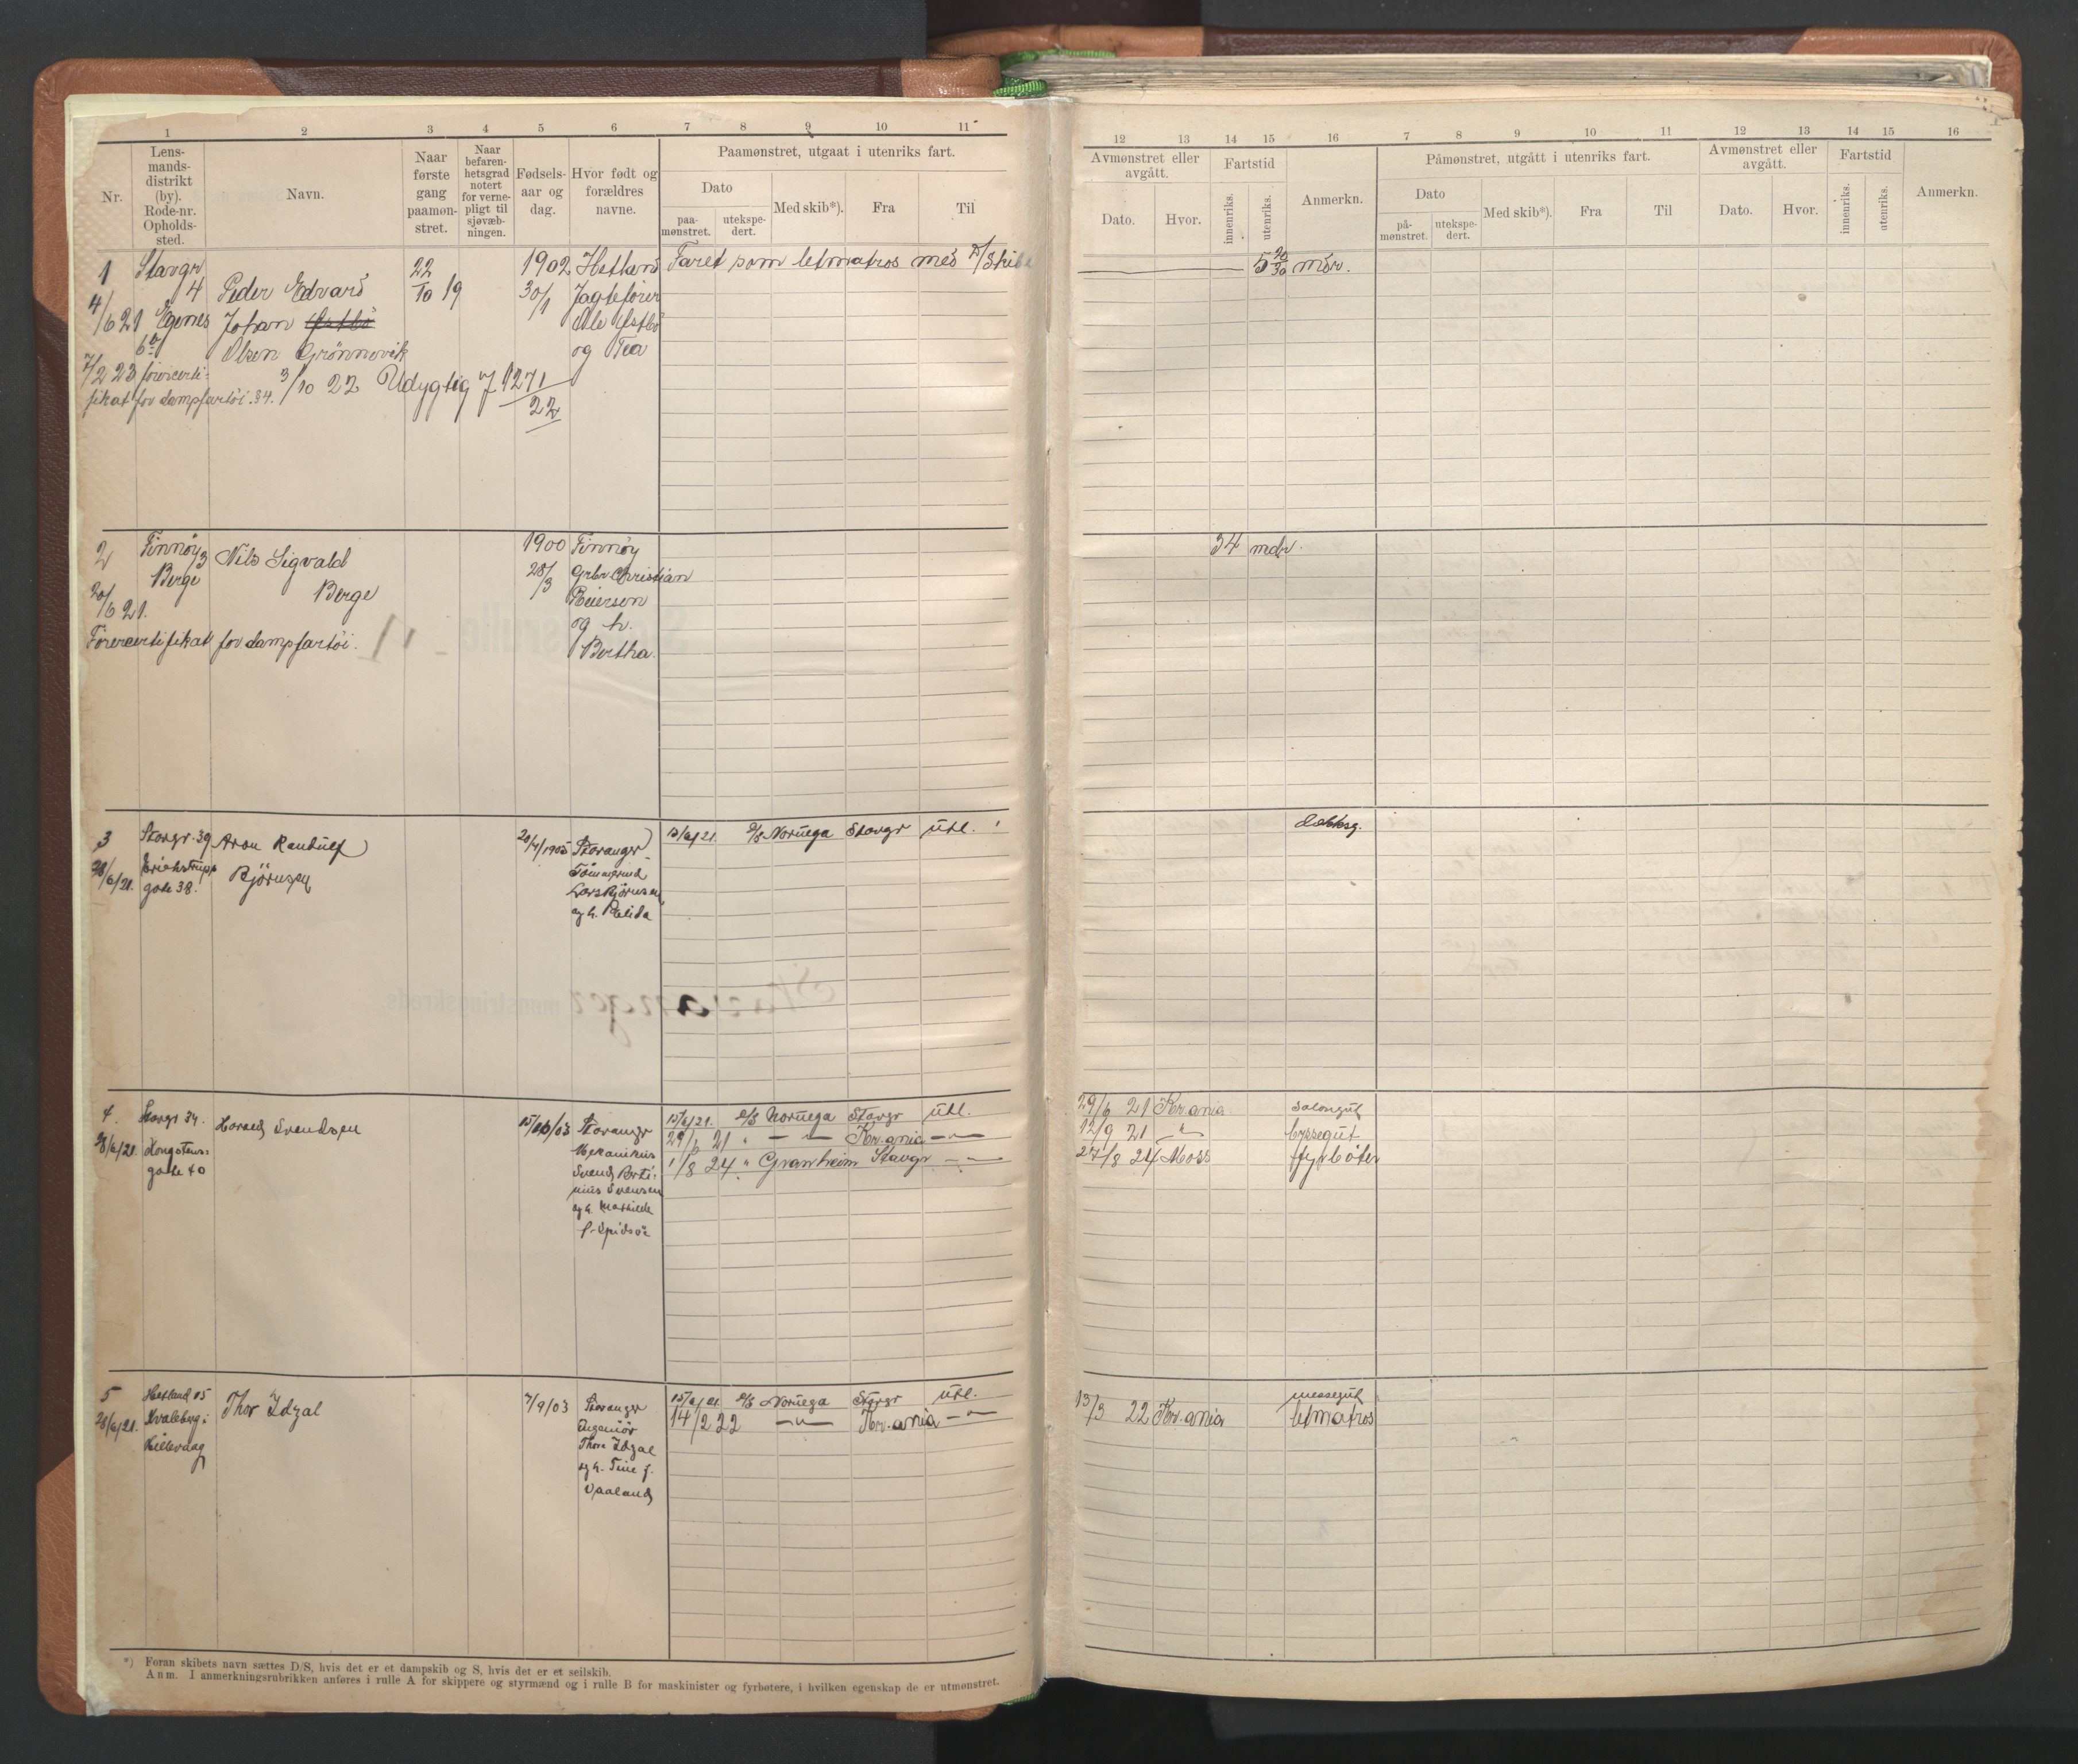 1 2 3 4 5 6 7 8 9 10 11
Nr.
Lens-
mands-
distrikt
(by).
Rode-nr.
Opholds-
sted.
Navn.
Naar
første
gang
paamøn-
stret.
Naar
befaren-
hetsgrad
notert
for verne-
pligt til
sjøvæb-
ningen.
Fødsels-
aar og
dag.
Hvor født og
forældres
navne.
Paamønstret, utgaat i utenriks fart.
Dato
paa-
mønstret.
utekspe-
dert.
Med skib*).
Fra
Til
12 13 14 15 16 7 8 9 10 11 12 13 14 15 16
Avmønstret eller
avgått.
Dato.
Hvor.
Fartstid
innenriks.
utenriks.
Anmerkn.
Påmønstret, utgått i utenriks fart.
Dato
på-
mønstret.
utekspe-
dert.
Med skib*).
Fra
Til
Avmønstret eller
avgått.
Dato.
Hvor.
Fartstid
innenriks.
utenriks.
Anmerkn.
1
Stavgr
4
4/6 21
Egenes
6a
Peder Edvard
Johan Østbö
Olsen Grönnevik
22
10 19
1902
30/1
Hetland
Jagtefører
Ole Østbö
og Tea
Faret som letmatros med D/
5 20/30 mdr.
7/2 23 förercerti-
fikat for dampfartöi. §4.
3/10 22 Udygtig 7 1271
22
2
Finnöy 3
Berge
20/6 21.
Nils Sigvald
Berge
1900
28/3
Finnöy
Grbr. Christian
Reiersen
og h.
Bertha.
34 mdr.
Förercertifikat for dampfartöi.
3
Stavgr. 39
28/6/21.
gate 38.
Björnsen
20/4/1905
Stavanger
Lars Björnsen
og h.
/6/21. D/S Noruega Stavgr Utl.
Dekksg.
4.
Stavgr 34.
28/6/21.
gate 40
Svendsen
/03
Stavanger
Mekanikus
og h. Mathilde
15/6/21. D/S Noruega Stavgr Utl.
29/6 21 " — " — Kr.ania — " —
1/8 24 " Granheim Stavgr — " —
29/6 21 Kr.ania Salongut
12/9 21 " byssegut
27/8 24 Moss fyrböter
5
Hetland 05
28/6/21.
Kvaleberg i
Hillevaag
Thor Idzal
7/9/03
Stavanger
Ingeniör
Thore Idzal
og h. Tine f.
Vaaland
15/6/21 D/S Noruega Stavgr Utl.
14/2 22 — " — Kr.ania — " —
messegut
13/3 22 Kr.ania letmatros
*) Foran skibets navn sættes D/S, hvis det er et dampskib og S, hvis det er et seilskib.
Anm. I anmerkningsrubrikken anføres i rulle A for skippere og styrmænd og i rulle B for maskinister og fyrbøtere, i hvilken egenskap de er utmønstret.